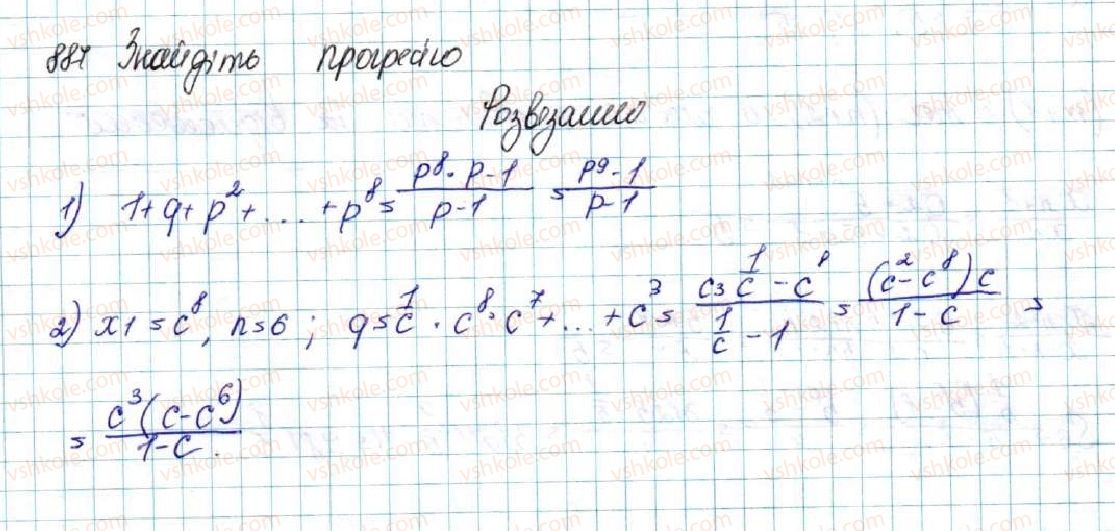 884 Знайдіть прогресію
Розвязання
1) 1+q+p²+...+p⁸ = (p⁸·p-1)/(p-1) = (p⁹-1)/(p-1)
2) x1 = c⁸, n=6; q = 1/c · c⁸·c⁷+...+c³ = (c3 1/c - c⁸)/(1/c - 1) = (c²-c⁸)c/(1-c) =
= c³(c-c⁶)/(1-c).
vshkole.com